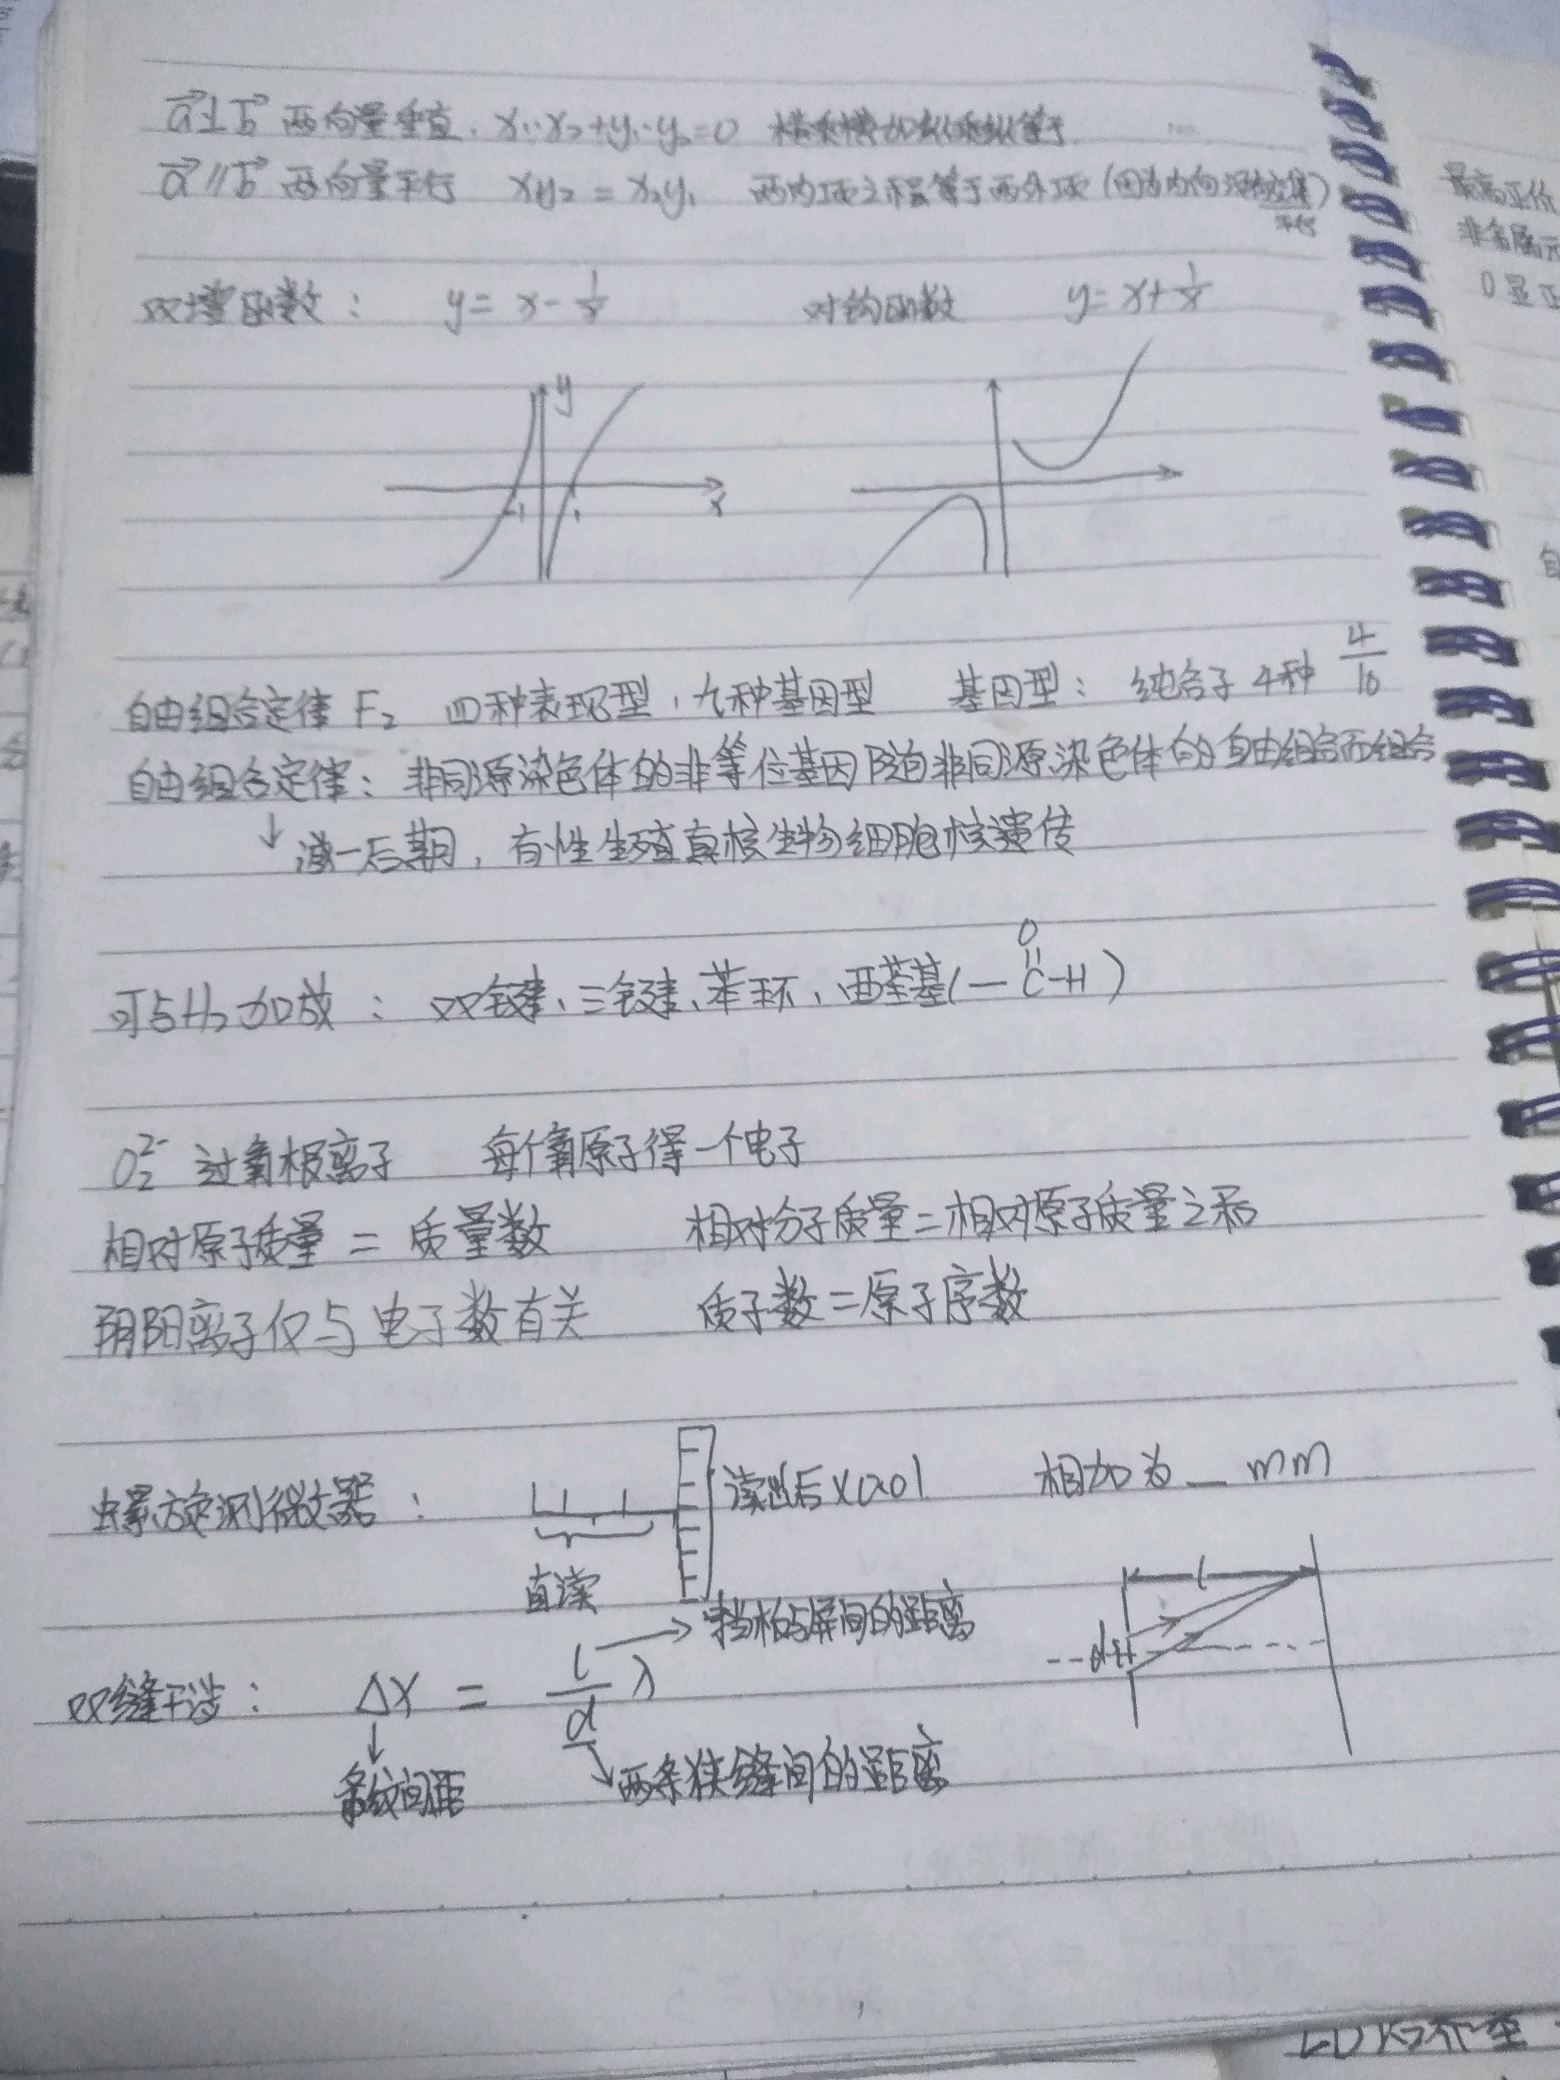 a⃗⊥b⃗ 两向量垂直. x₁·x₂+y₁·y₂=0 横乘横加纵乘纵等于
a⃗∥b⃗ 两向量平行 xy₂=x₂y₁ 两内项之积等于两外项(因为内向
平行
双增函数: y=x-1/x 对钩函数 y=x+1/x
y
x
-1 1
自由组合定律 F₂ 四种表现型,九种基因型 基因型: 纯合子4种 4/16
自由组合定律: 非同源染色体的非等位基因随非同源染色体的自由组合而组合
↓减一后期,有性生殖真核生物细胞核遗传
可与H₂加成: 双键、三键、苯环、醛基(-C(=O)-H)
O₂²⁻ 过氧根离子 每个氧原子得一个电子
相对原子质量=质量数 相对分子质量=相对原子质量之和
阴阳离子仅与电子数有关 质子数=原子序数
螺旋测微器: 读出后×0.01 相加为__mm
直读
双缝干涉: Δx = l/d λ →挡板与屏间的距离
↓条纹间距 ↘两条狭缝间的距离
l
d
最高正价
非金属元
O显正
自